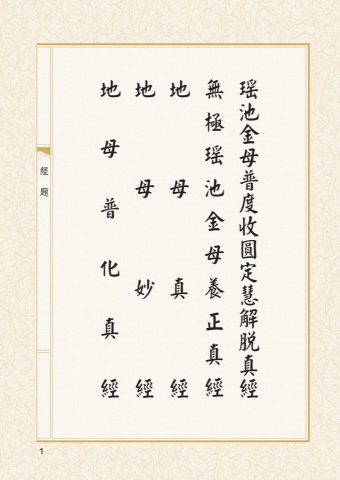 瑶池金母普度收圓定慧解脱真經
無極瑶池金母養正真經
地母真經
地母妙經
地母普化真經
經題
1